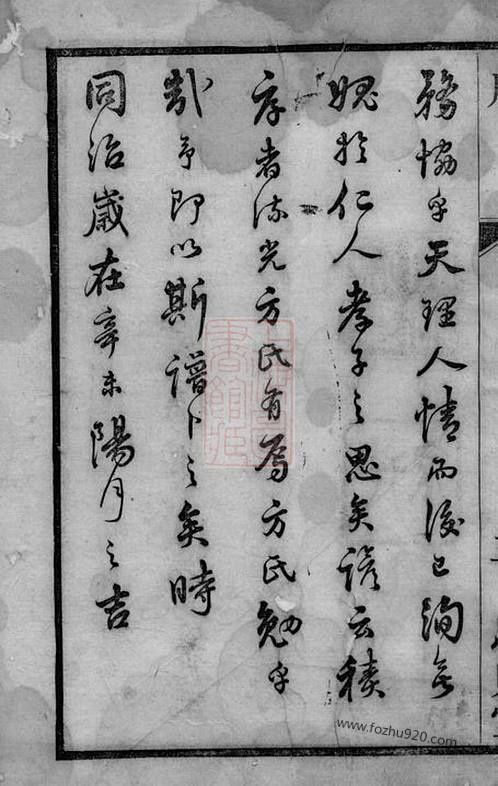 務協乎天理人情而後已洵無
愧於仁人孝子之思矣諺云積
厚者流光方氏有焉方氏勉乎
哉予即以斯譜卜之矣時
同治歲在辛未陽月之吉
書館
www.fozhu920.com